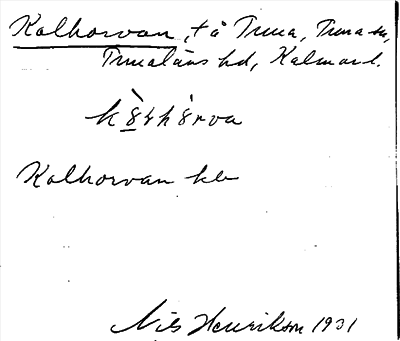 Kolhorvan, t å Tuna, Tuna sn,
Tunaläns hd, Kalmar l.
Kolhorvan kb
Nils Henrikson 1931